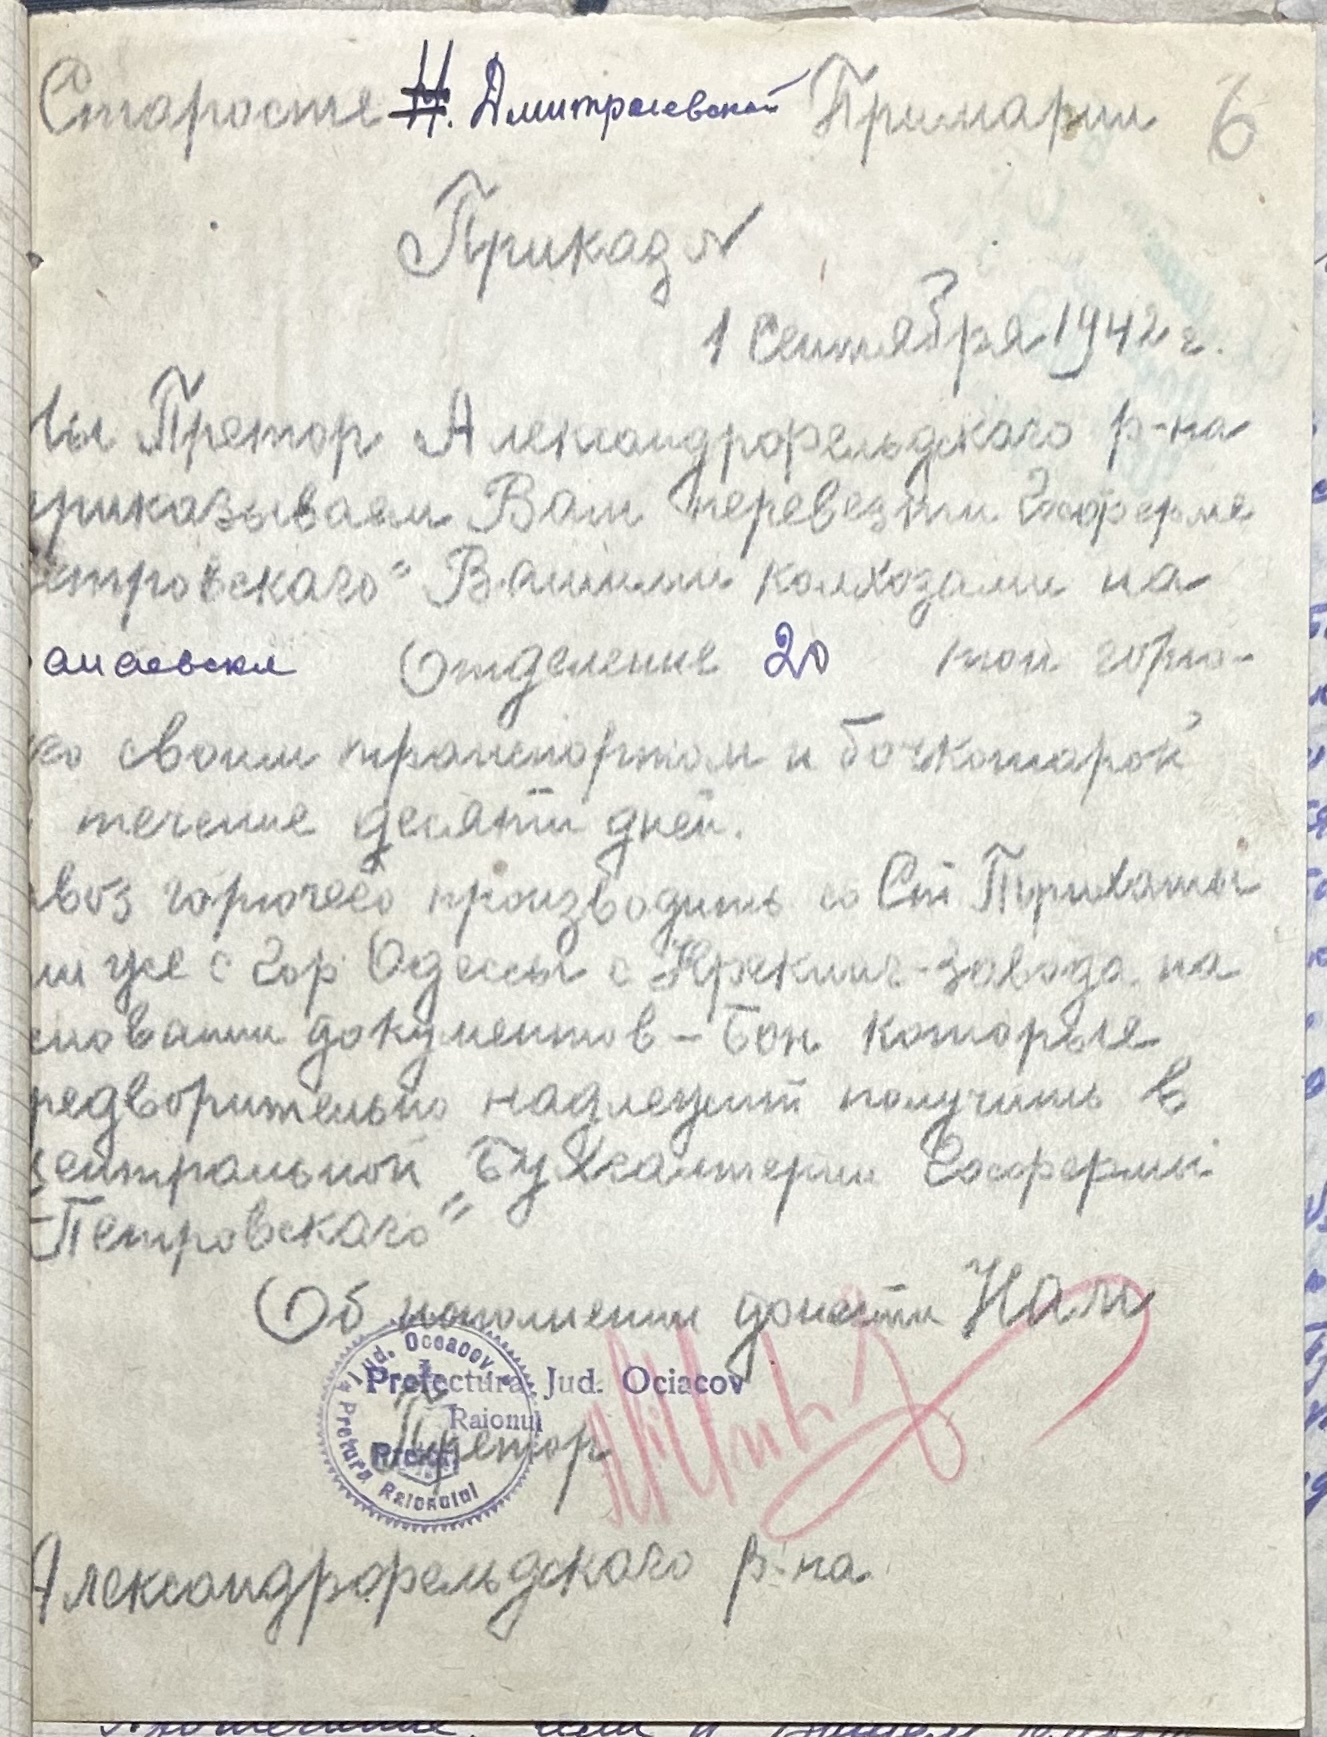 Старосте Н. Дмитриевской Примарии 6
Приказ №
1 Сентября 1942 г.
Мы Претор Александрофельдскаго р-на
приказываем Вам перевезти Госферме
етровскаго" Вашими колхозами на
анаевска Отделение 20 тон горю-
го своим транспортом и бочкотарой
течение десяти дней.
воз горючего производить со Ст Трихаты
ли уже с гор Одессы с Крекинг-завода на
сновании документов – Бон которые
редворительно надлежит получить в
Центральной Бухгалтерии Госфермы
"Петровскаго"
Об исполнении донести Нам
Jud. Oceacov
Pretura Raionului
Prefectura Jud. Ociacov
Raionul
Pretor
Претор
Александрофельдскаго р-на